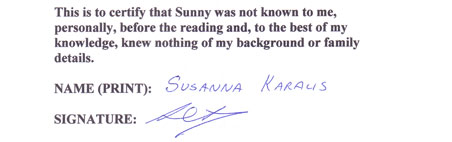 This is to certify that Sunny was not known to me,
personally, before the reading and, to the best of my
knowledge, knew nothing of my background or family
details.
NAME (PRINT): SUSANNA KARALIS
SIGNATURE: